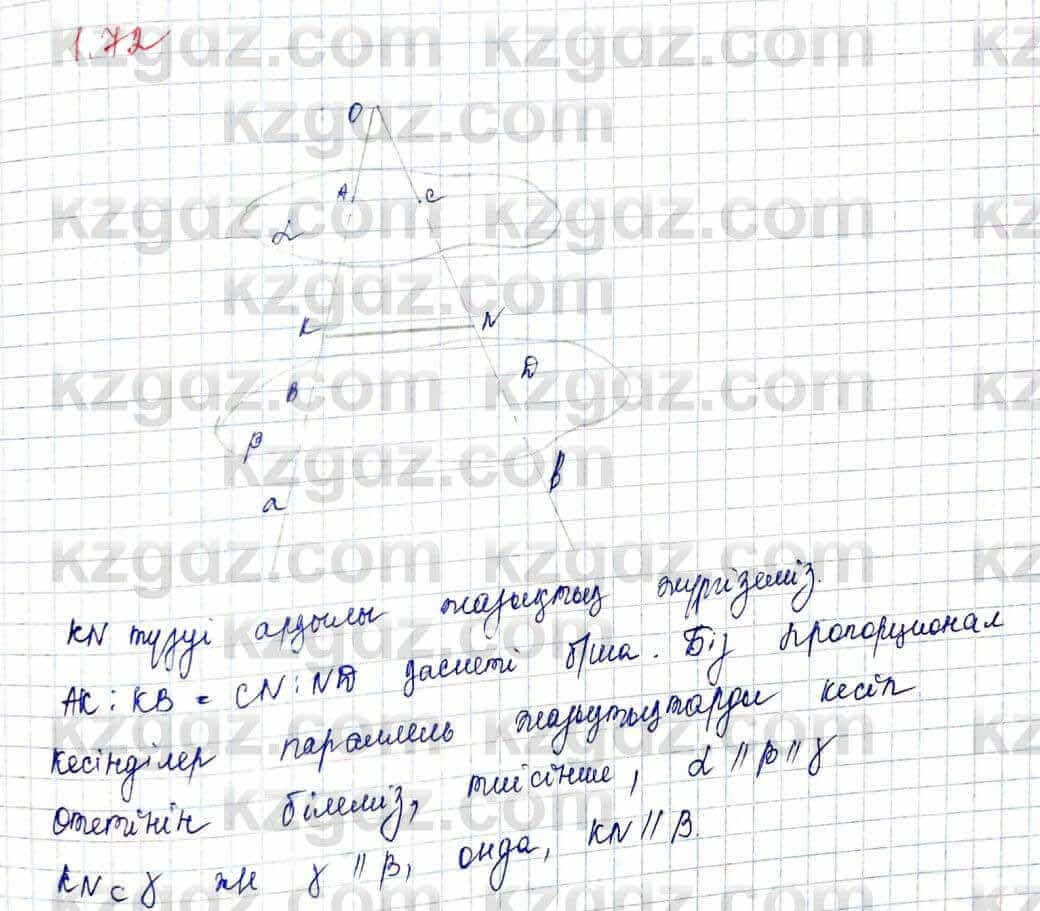 1.72
O
A
C
α
K
N
B
D
β
a
b
KN түзуі арқылы жазықтық жүргіземіз.
AK : KB = CN : ND қасиеті б/ша. Біз пропорционал
кесінділер параллель жазықтықтарды кесіп
өтетінін білеміз, тиісінше, α || β || γ
KN ⊂ γ ж/е γ || β, онда, KN || β.
kzgdz.com